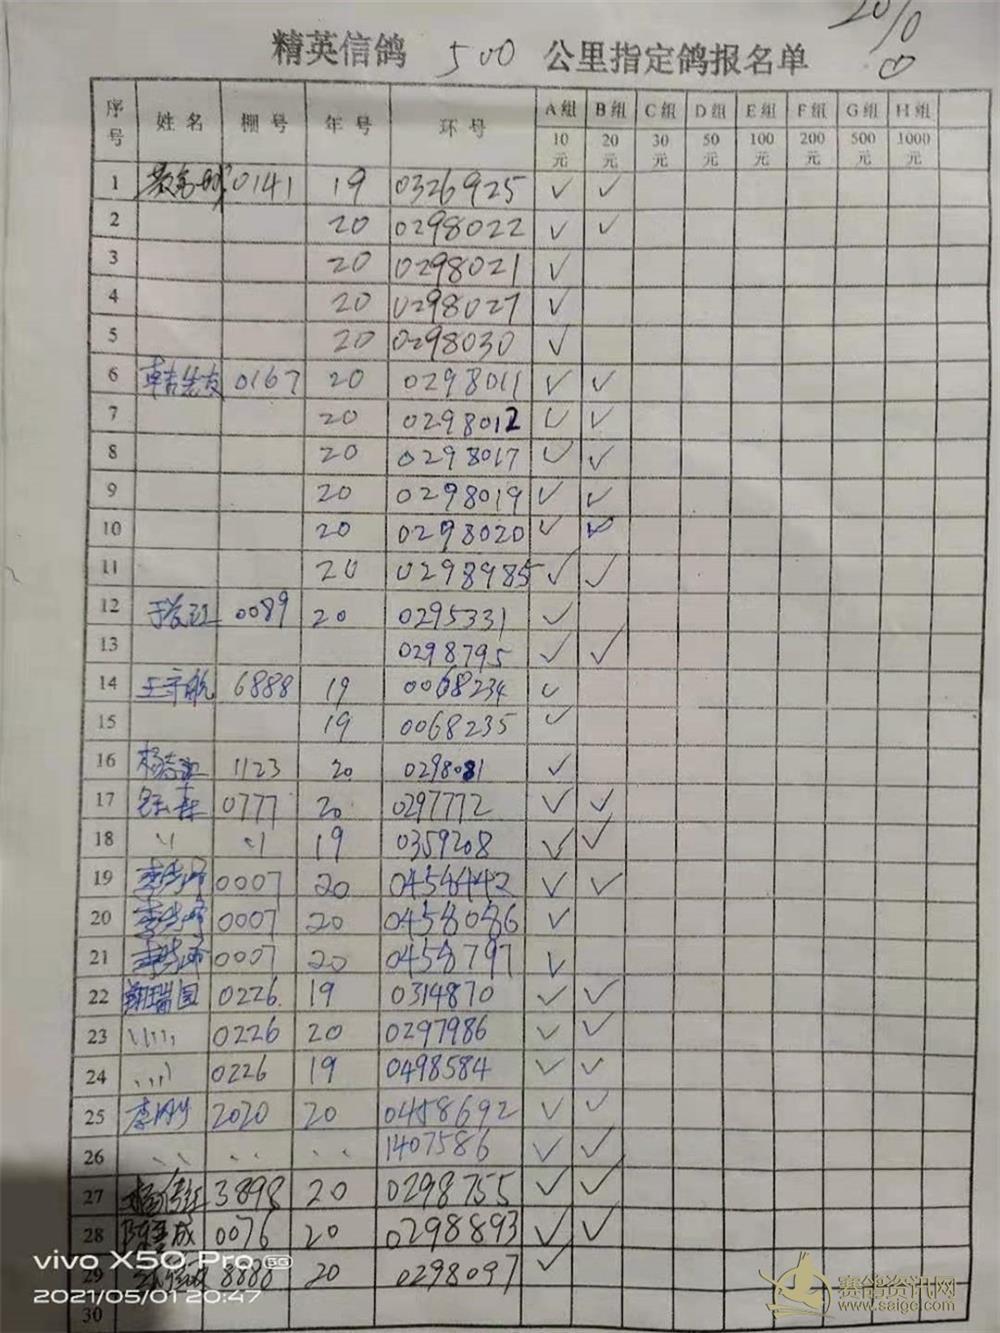 20/0
精英信鸽 500 公里指定鸽报名单
序号 姓名 棚号 年号 环号 A组 B组 C组 D组 E组 F组 G组 H组
10元 20元 30元 50元 100元 200元 500元 1000元
1 0141 19 0326925 ✓ ✓
2 20 0298022 ✓ ✓
3 20 0298021 ✓
4 20 0298027 ✓
5 20 0298030 ✓
6 0167 20 0298011 ✓ ✓
7 20 0298012 ✓ ✓
8 20 0298017 ✓ ✓
9 20 0298019 ✓ ✓
10 20 0298020 ✓ ✓
11 20 0298985 ✓ ✓
12 0089 20 0295331 ✓
13 0298795 ✓ ✓
14 6888 19 0068234 ✓
15 19 0068235 ✓
16 1123 20 0298081 ✓
17 0777 20 0297772 ✓ ✓
18 〃 〃 19 0359208 ✓ ✓
19 0007 20 0458442 ✓ ✓
20 0007 20 0458086 ✓
21 0007 20 0458797 ✓
22 0226 19 0314870 ✓ ✓
23 0226 20 0297986 ✓ ✓
24 0226 19 0498584 ✓ ✓
25 李刚 2020 20 0458692 ✓ ✓
26 1407586 ✓ ✓
27 3898 20 0298755 ✓ ✓
28 0076 20 0298893 ✓ ✓
29 8888 20 0298097 ✓
30
vivo X50 Pro 5G
2021/05/01 20:47
赛鸽资讯网
www.saige.com